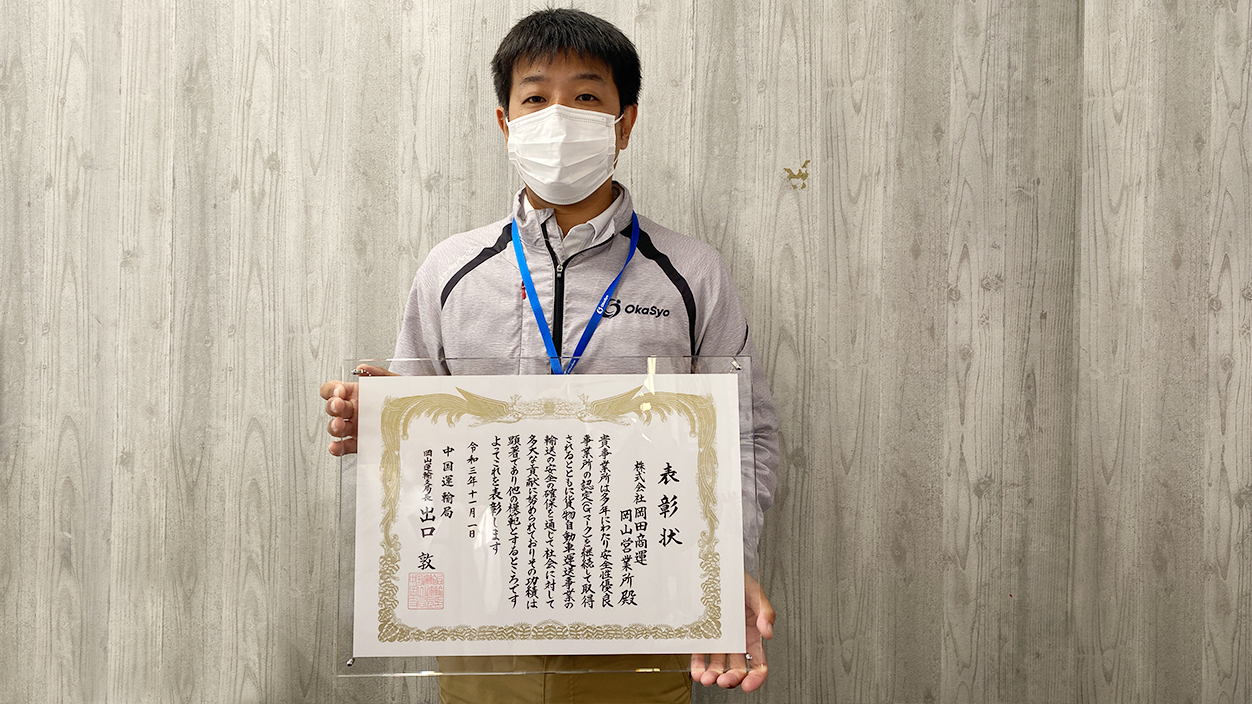 OkaSyo
表彰状
株式会社岡田商運
岡山営業所殿
貴事業所は多年にわたり安全性優良
事業所の認定(Gマーク)を継続して取得
されるとともに貨物自動車運送事業の
輸送の安全の確保を通じて社会に対して
多大な貢献に努められておりその功績は
顕著であり他の模範とするところです
よってこれを表彰します
令和三年十一月一日
中国運輸局
岡山運輸支局長 出口 敦